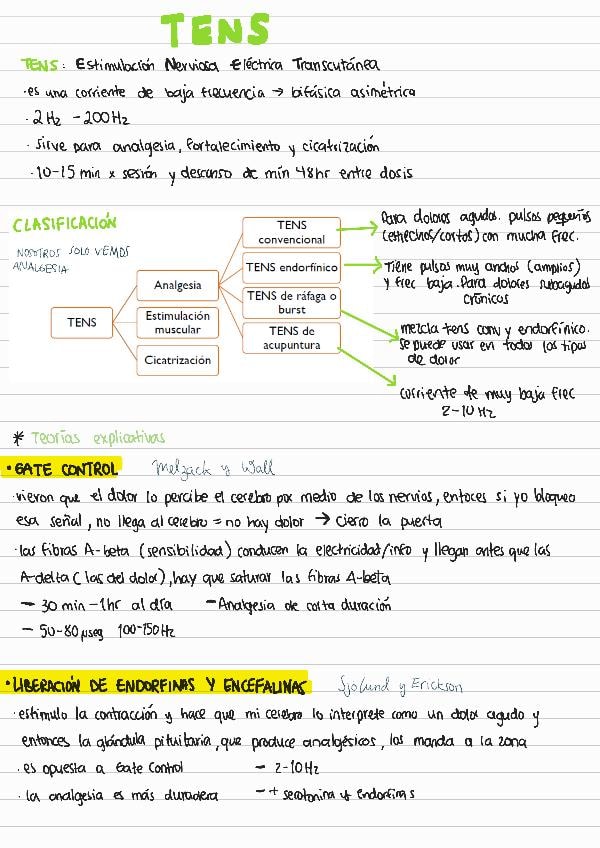 TENS
TENS: Estimulación Nerviosa Eléctrica Transcutánea
·es una corriente de baja frecuencia → bifásica asimétrica
·2Hz -200Hz
· Sirve para analgesia, fortalecimiento y cicatrización
·10-15 min x sesión y descanso de mín 48hr entre dosis
CLASIFICACIÓN
NOSOTROS SOLO VEMOS
ANALGESIA
TENS
Analgesia
Estimulación
muscular
Cicatrización
TENS
convencional
TENS endorfínico
TENS de ráfaga o
burst
TENS de
acupuntura
Para dolores agudos. pulsos pequeños
(estrechos/cortos) con mucha frec.
Tiene pulsos muy anchos (amplios)
y frec baja. Para dolores subagudos
crónicos
mezcla tens conv y endorfínico.
se puede usar en todos los tipos
de dolor
corriente de muy baja frec
2-10Hz
* Teorías explicativas
·GATE CONTROL Melzack y Wall
·vieron que el dolor lo percibe el cerebro por medio de los nervios, entoces si yo bloqueo
esa señal, no llega al cerebro = no hay dolor → cierro la puerta
·las fibras A-beta (sensibilidad) conducen la electricidad/info y llegan antes que las
A-delta (las del dolor), hay que saturar las fibras A-beta
- 30 min -1hr al día - Analgesia de corta duración
- 50-80 μseg 100-150Hz
·LIBERACIÓN DE ENDORFINAS Y ENCEFALINAS Sjolund y Erickson
·estimulo la contracción y hace que mi cerebro lo interprete como un dolor agudo y
entonces la glándula pituitaria, que produce analgésicos, los manda a la zona
·es opuesta a Gate Control - 2-10Hz
·la analgesia es más duradera - + serotonina y endorfinas